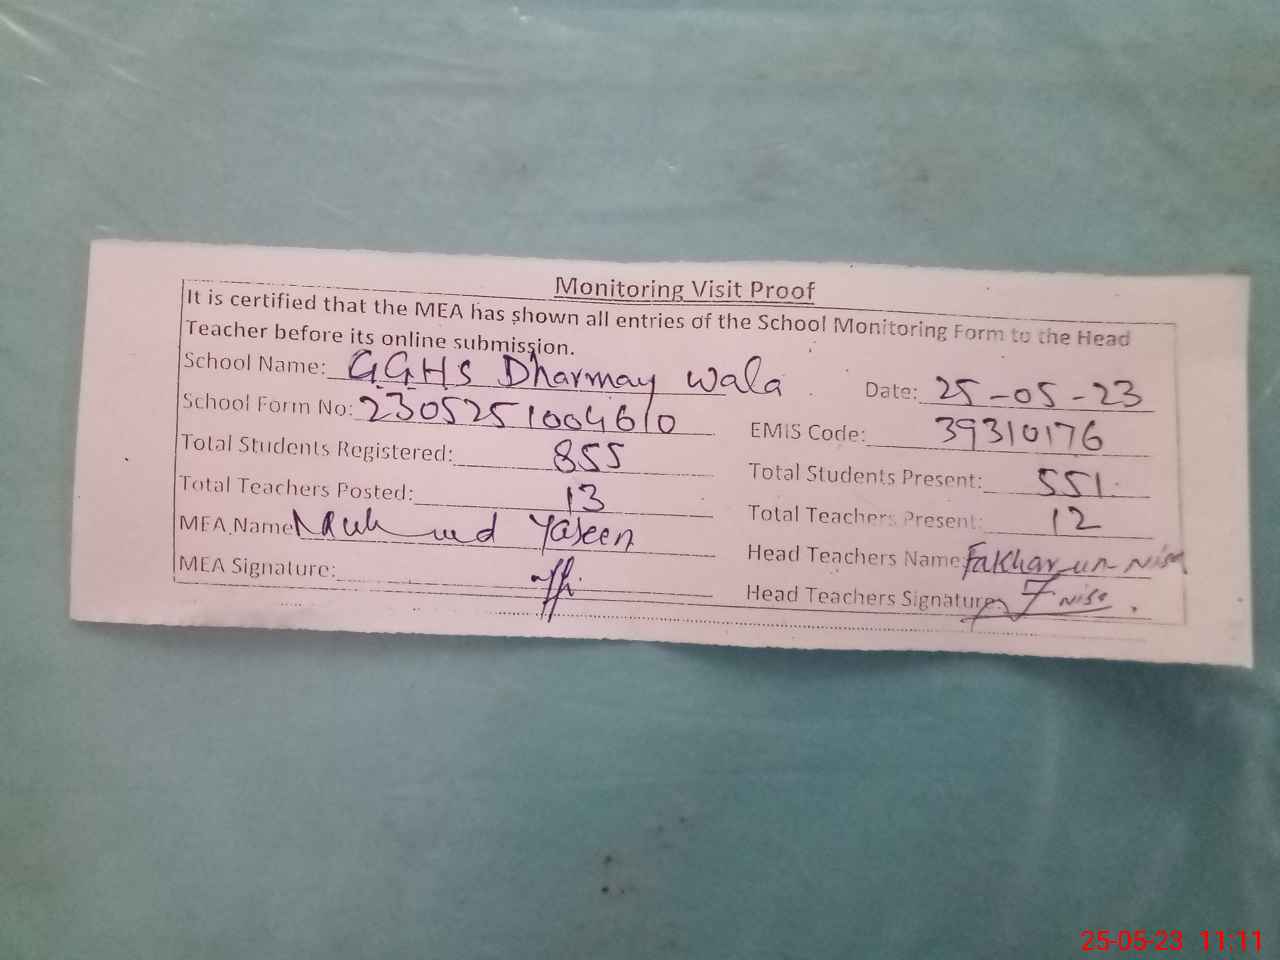 Monitoring Visit Proof
It is certified that the MEA has shown all entries of the School Monitoring Form to the Head
Teacher before its online submission.
School Name: G.G.H.S Dharmay Wala Date: 25-05-23
School Form No: 2305251004610 EMIS Code: 39310176
Total Students Registered: 855 Total Students Present: 551
Total Teachers Posted: 13 Total Teachers Present: 12
MEA Name Yaseen Head Teachers Name: Fakhar un Nisa
MEA Signature: Head Teachers Signature: Nisa
25-05-23 11:11